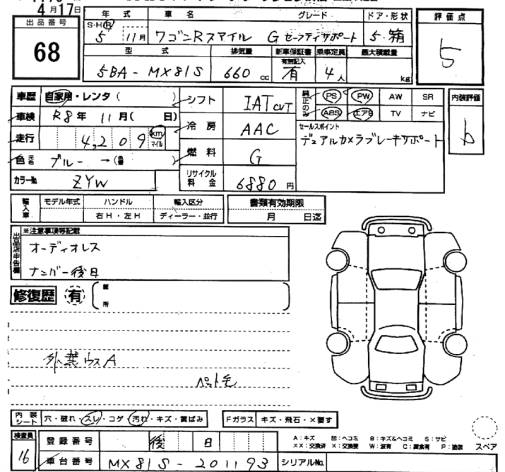 4月17日
出品番号
68
年式 車名 グレード ドア・形状
S・H・R 5年 11月 ワゴンRスマイル G セーフティサポート 5・箱
評価点
5
型式 排気量 新車保証書 乗車定員 最大積載量
有無記入
5BA-MX81S 660cc 有 4人 kg
車歴 自家用・レンタ( )
シフト IAT CVT
純正のみ PS PW AW SR
ABS エアB TV ナビ
内装評価
b
車検 R8年11月( 日)
冷房 AAC
セールスポイント
デュアルカメラブレーキサポート
走行 4,209 km マイル
燃料 G
色 ブルー→( )
リサイクル料金 6880円
カラーNo. ZYW
輸入車 モデル年式 ハンドル 輸入区分
右H・左H ディーラー・並行
書類有効期限
月 日迄
出品店申告欄 ※注意事項等記載
オーディオレス
ナンバー後日
修復歴 有 箇所
外葉ウスA
ペット毛
内装シート 穴・破れ・スレ・コゲ・汚れ・キズ・黄ばみ
Fガラス キズ・飛石・×要す
検査員
16
登録番号 後日
車台番号 MX81S-201193
シリアルNo.
A:キズ 凹:ヘコミ B:キズ&ヘコミ S:サビ
XX:交換済 X:交換 W:波有 C:腐食有 P:塗装
スペア